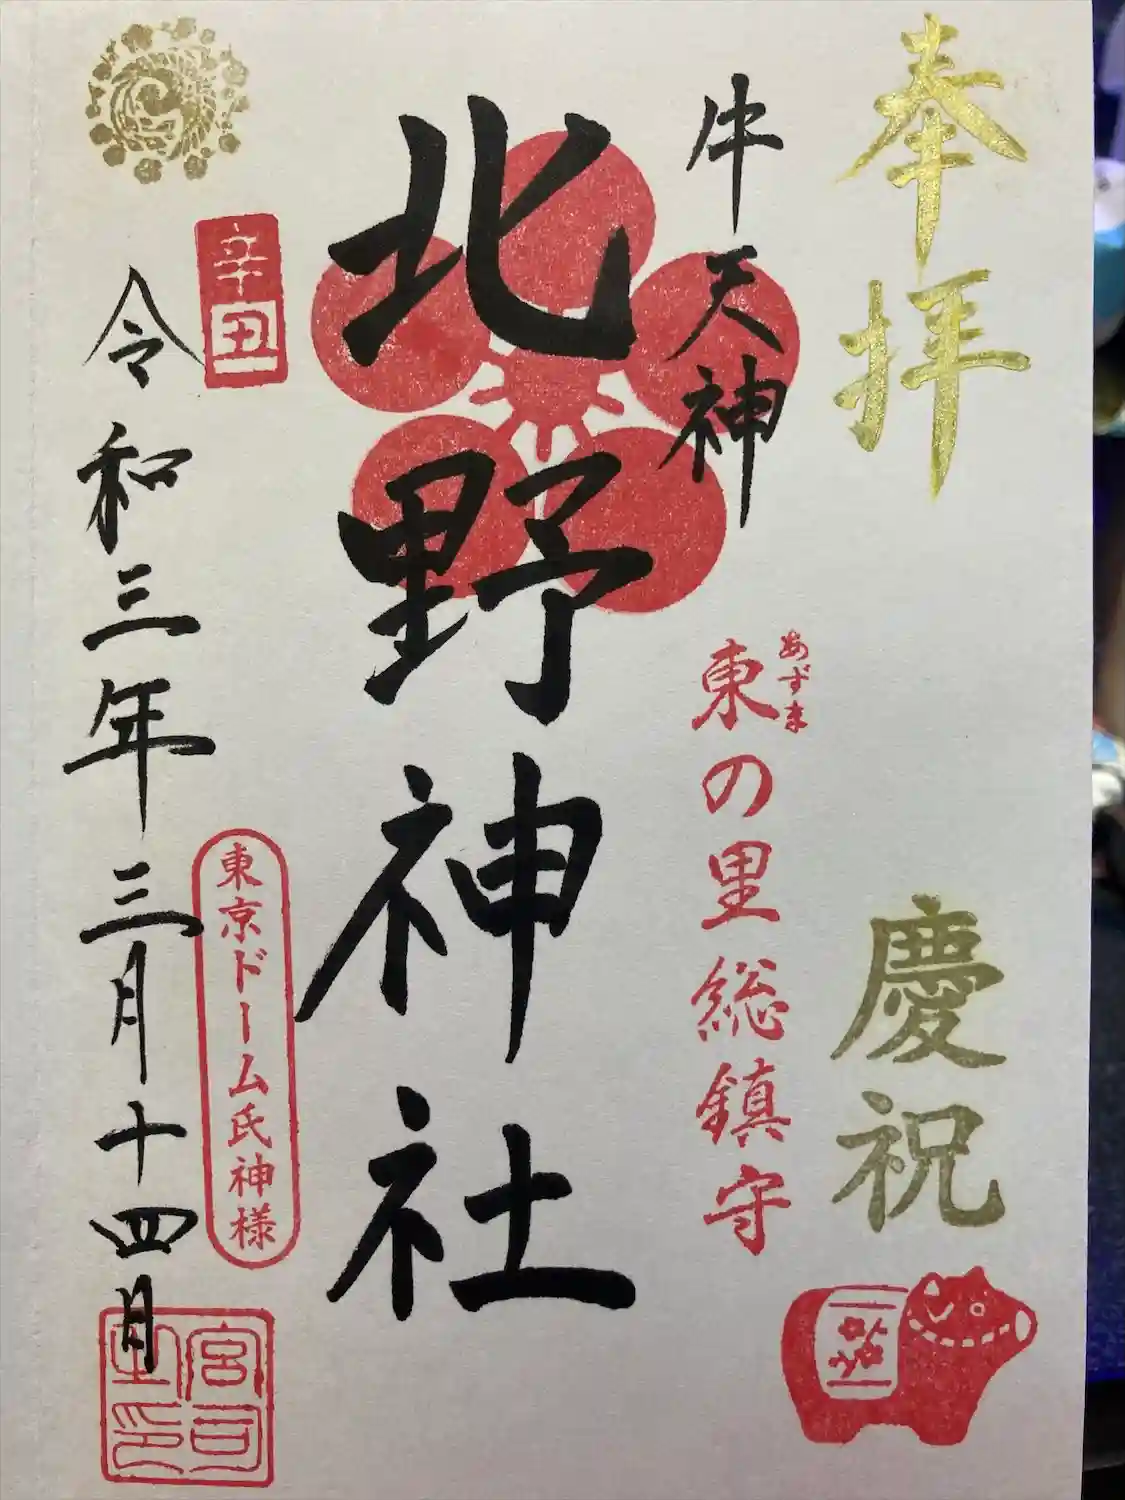 奉拝
慶祝
牛天神
あずま
東の里総鎮守
北野神社
辛丑
東京ドーム氏神様
令和三年三月十四日
宮司之印